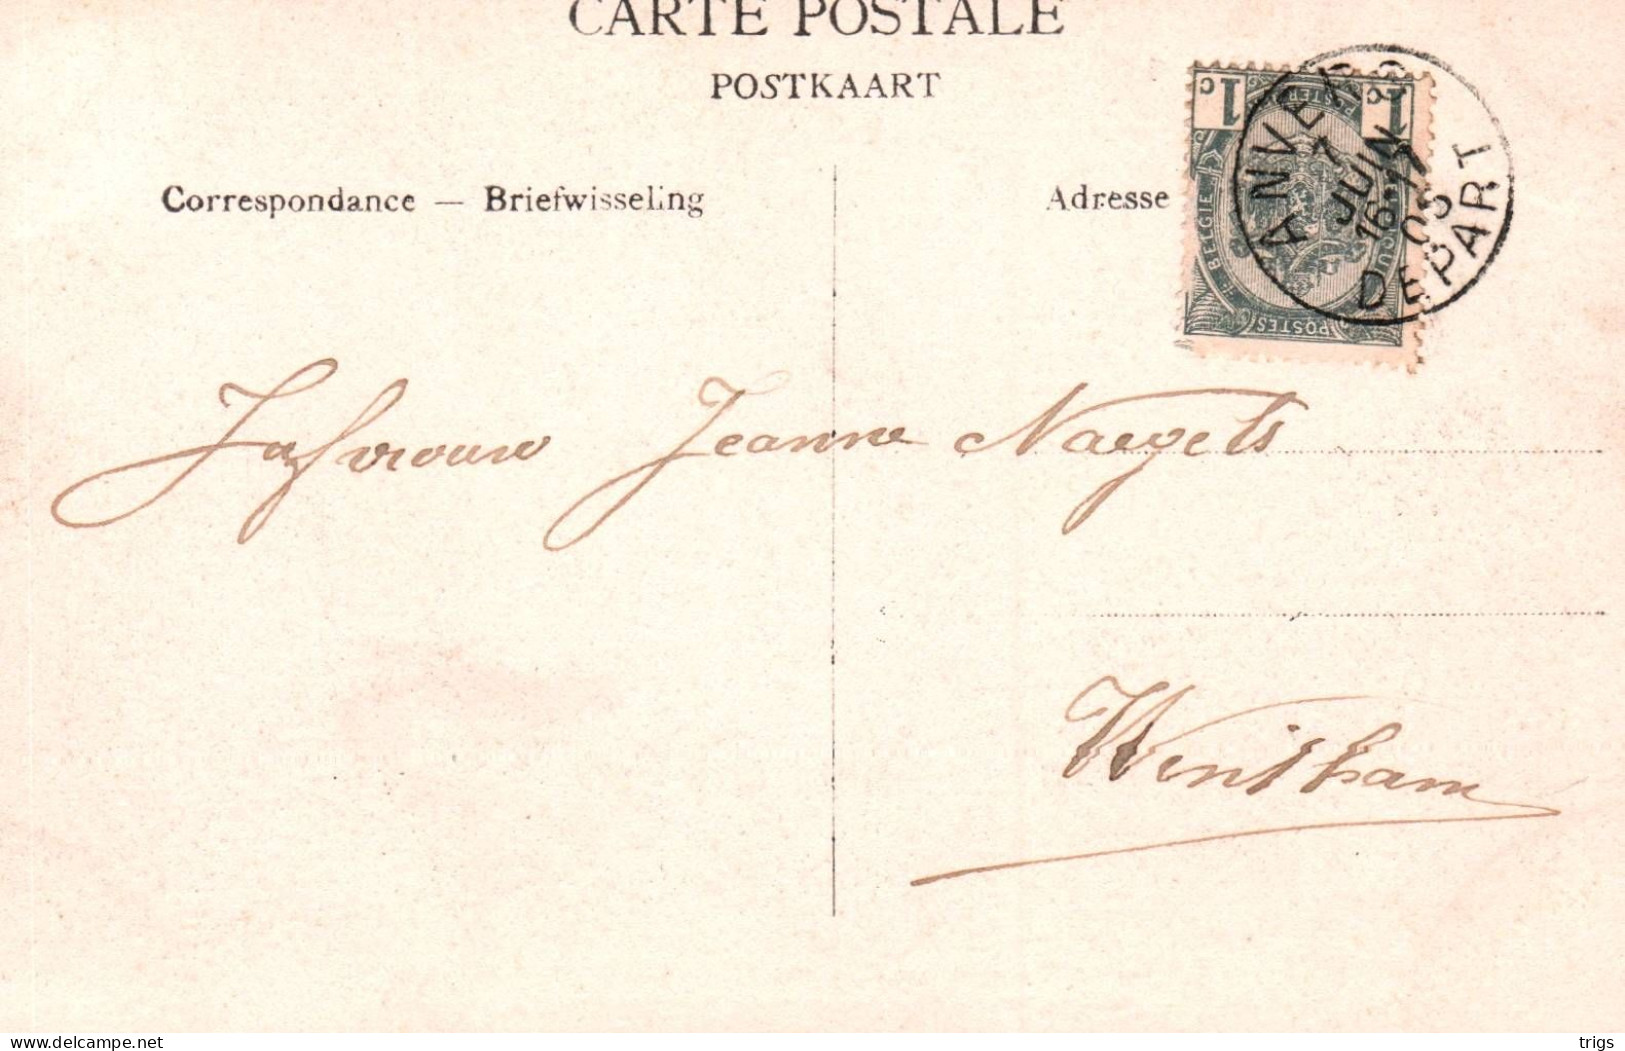 CARTE POSTALE
POSTKAART
Correspondance — Briefwisseling
Adresse
1c 1c
POSTERIJEN
BELGIE
POSTES
ANVERS
7
JUIN
16-17
05
DEPART
Jufvrouw Jeanne Naegels
Wintham
delcampe.net
trigs